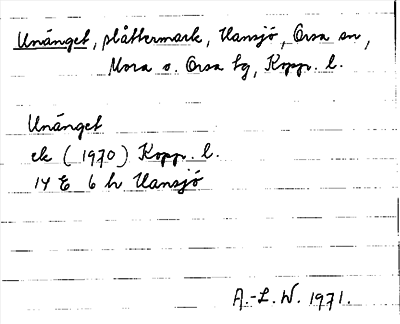 Unänget, slåttermark, Hansjö, Orsa sn,
Mora o. Orsa tg, Kopp. l.
Unänget
ek (1970) Kopp. l.
14 E 6 h Hansjö
A.-L. W. 1971.